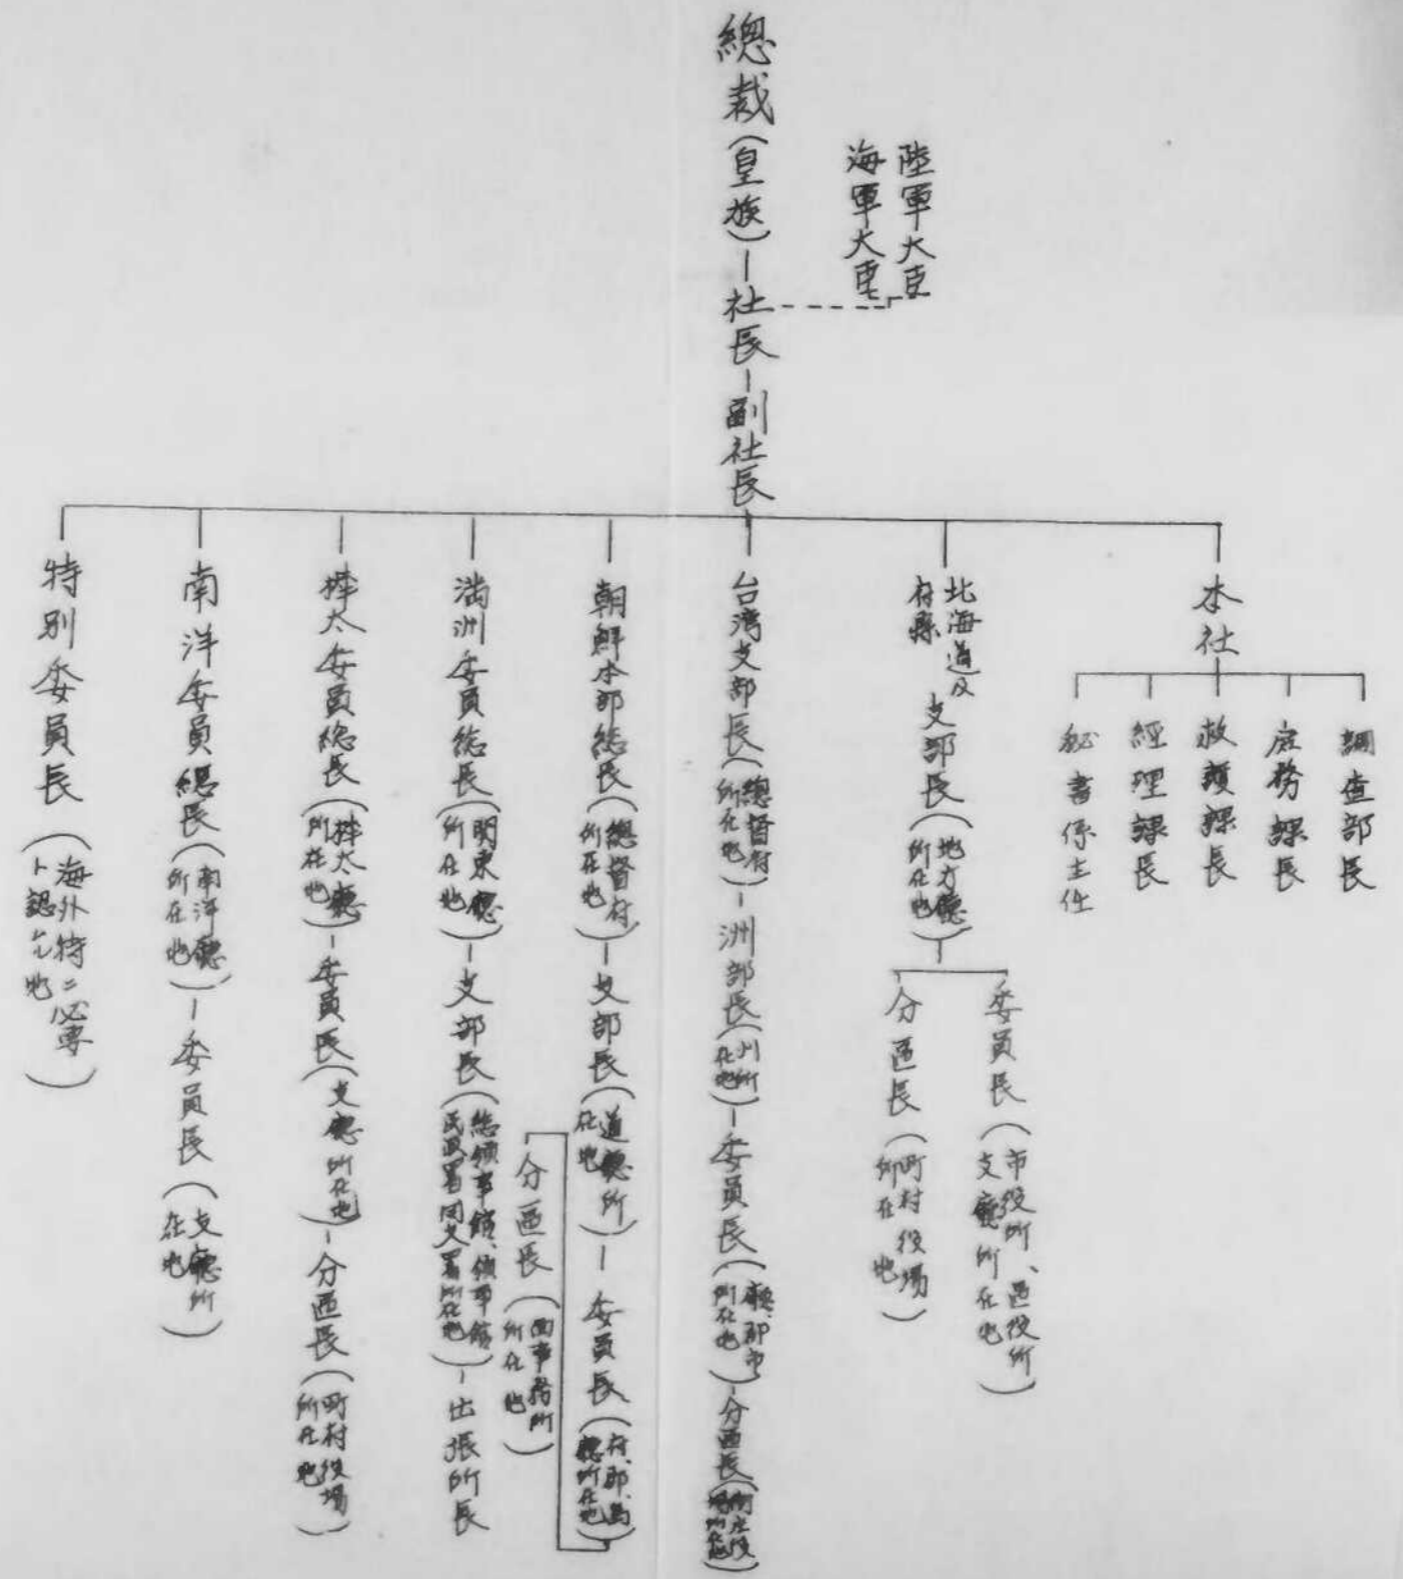 總裁(皇族)ー社長ー副社長
陸軍大臣
海軍大臣
本社
調査部長
庶務課長
救護課長
經理課長
秘書係主任
北海道及
府縣
支部長(地方廳
所在地)
委員長(市役所、區役所
支廳所在地)
分區長(町村役場
所在地)
台湾支部長(總督府
所在地)ー洲部長(州所
在地)ー委員長(廳、郡市
所在地)ー分區長(街庄役
場所在地)
朝鮮本部総長(總督府
所在地)ー支部長(道廳所
在地)ー委員長(府、郡、島
廳所在地)
分區長(面事務所
所在地)
満洲委員総長(関東廳
所在地)ー支部長(総領事館、領事館
民政署同支署所在地)ー出張所長
樺太委員総長(樺太廳
所在地)ー委員長(支廳所在地)ー分區長(町村役場
所在地)
南洋委員總長(南洋廳
所在地)ー委員長(支廳所
在地)
特別委員長(海外特ニ必要
ト認ムル地)